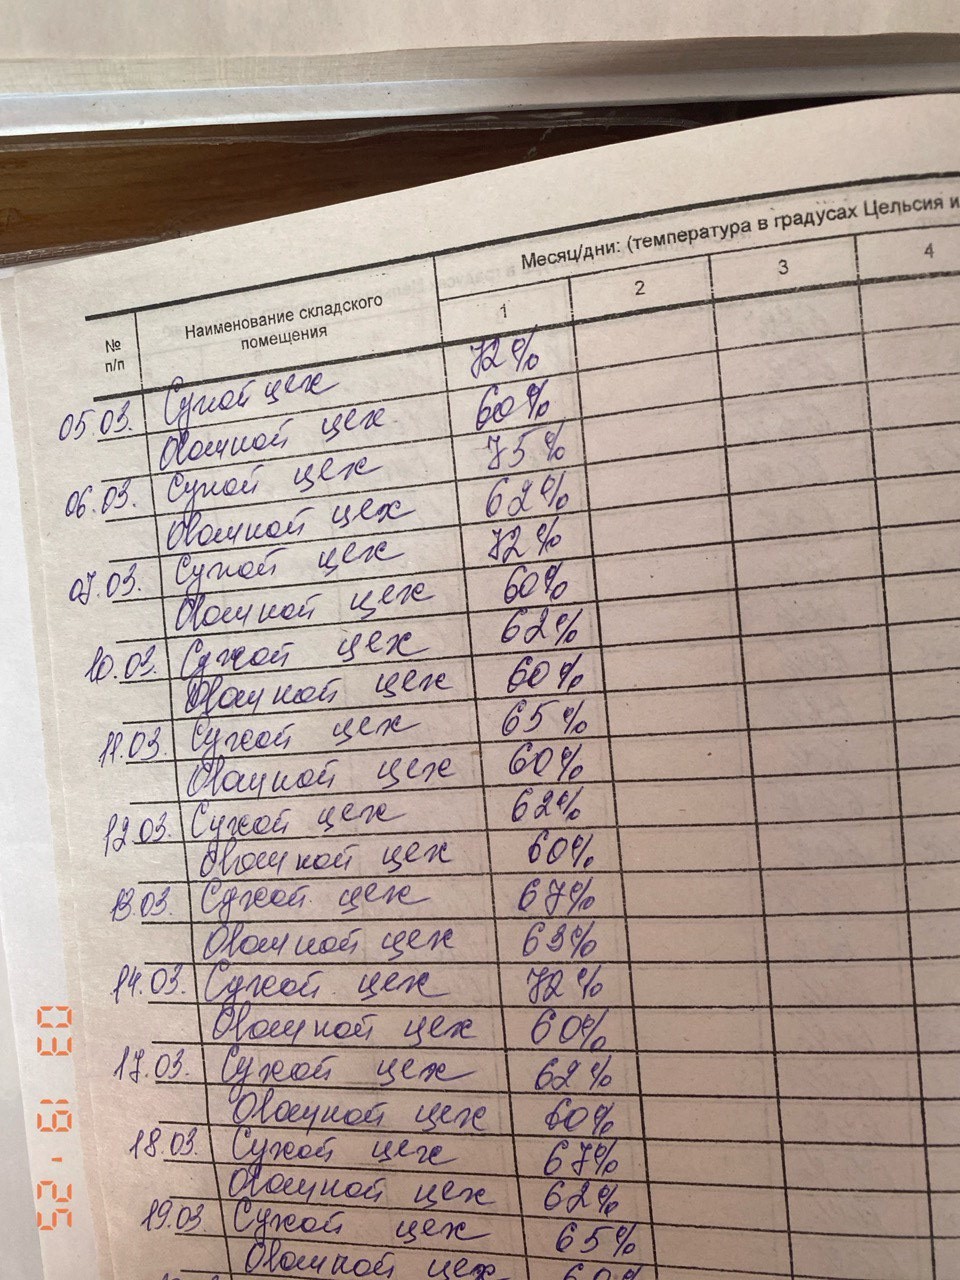 Месяц/дни: (температура в градусах Цельсия и
№ п/п Наименование складского помещения 1 2 3 4
05.03. Сухой цех 72%
Овощной цех 60%
06.03. Сухой цех 75%
Овощной цех 62%
07.03. Сухой цех 72%
Овощной цех 60%
10.03. Сухой цех 62%
Овощной цех 60%
11.03. Сухой цех 65%
Овощной цех 60%
12.03. Сухой цех 62%
Овощной цех 60%
13.03. Сухой цех 67%
Овощной цех 63%
14.03. Сухой цех 72%
Овощной цех 60%
17.03. Сухой цех 62%
Овощной цех 60%
18.03. Сухой цех 67%
Овощной цех 62%
19.03. Сухой цех 65%
Овощной цех 60%
03 19 '25